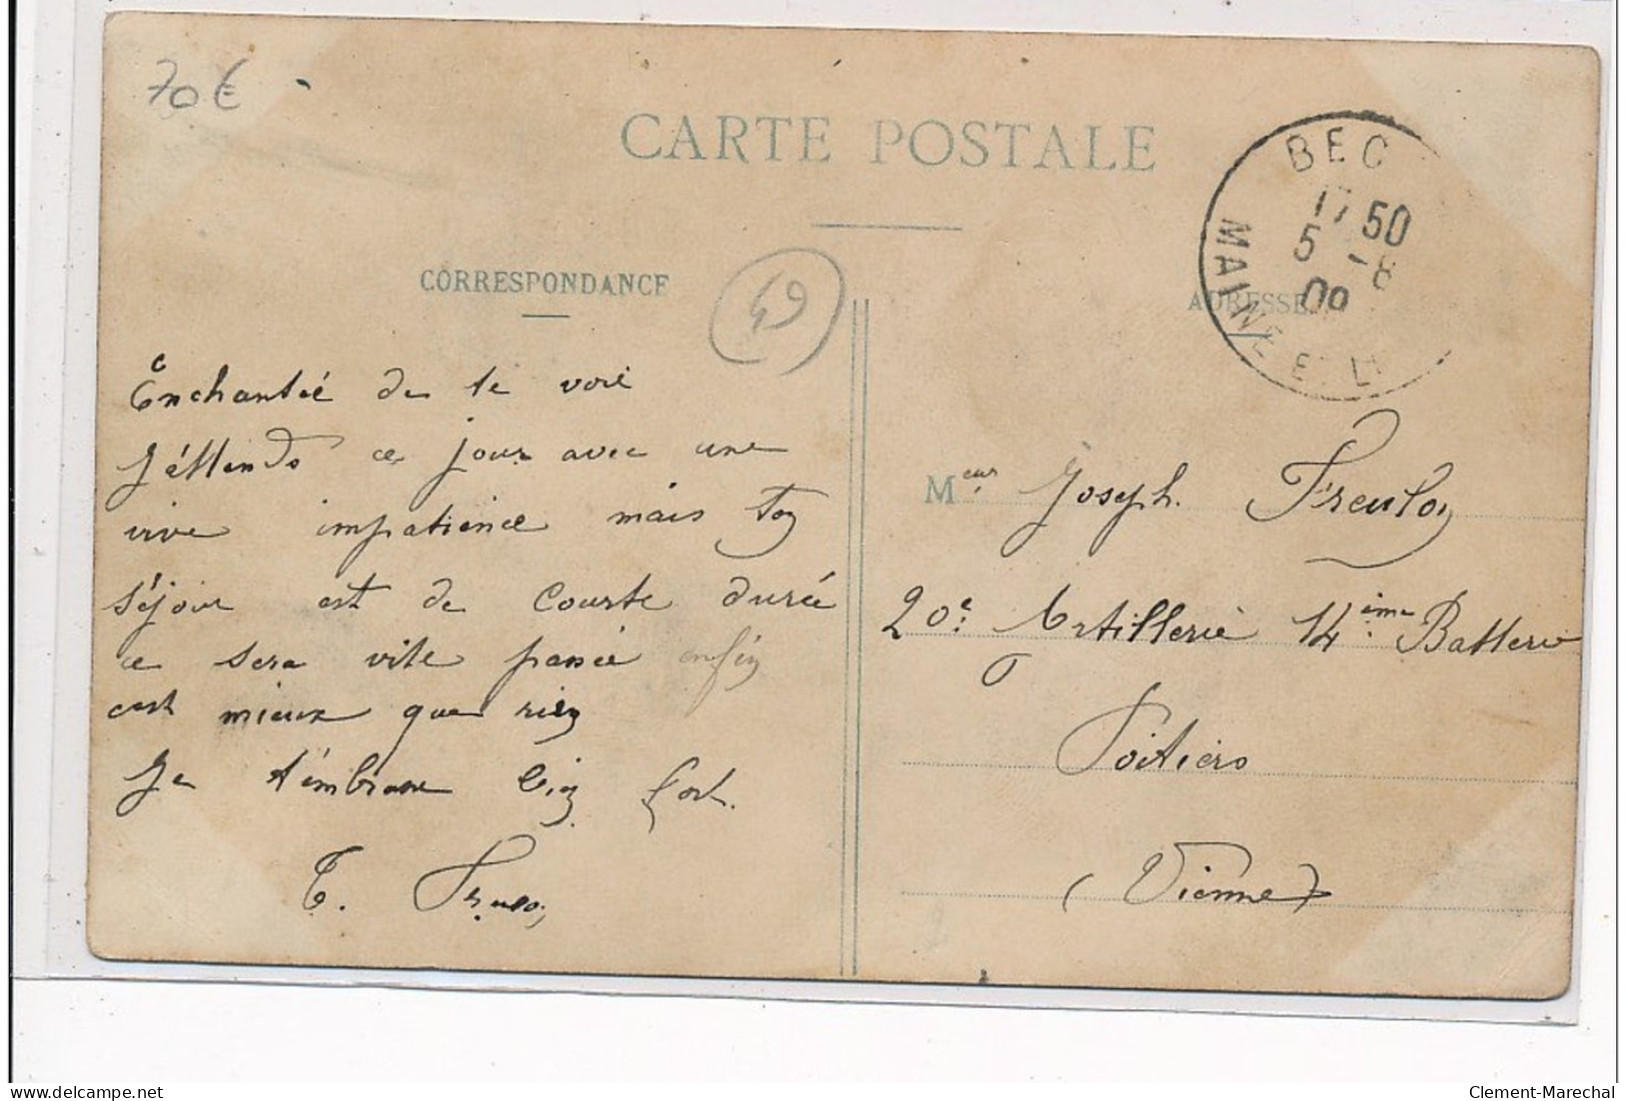 70€
CARTE POSTALE
BEC
17 50
5 -8
09
MAINE E. L
CORRESPONDANCE
49
ADRESSE
Enchantée de te voir
J'attends ce jour avec une
vive impatience mais ton
séjour est de courte durée
ce sera vite passé enfin
c'est mieux que rien
Je t'embrasse bien fort.
T. Freulon
Meur Joseph. Freulon
20e Artillerie 14ème Batterie
Poitiers
(Vienne)
Clement-Marechal
delcampe.net